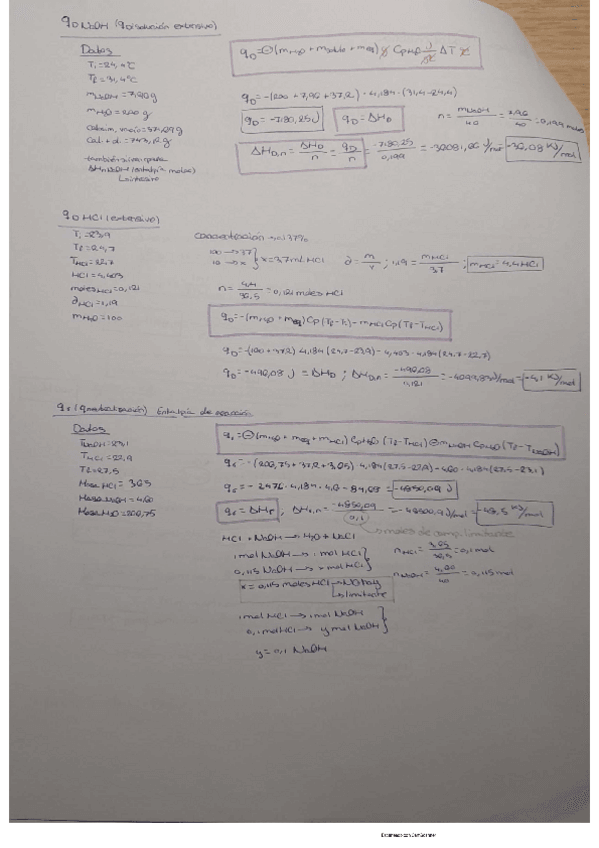 q_D NaOH (q disolución extensivo)
Datos
T_i = 24,4ºC
T_f = 31,4ºC
m_NaOH = 7,96g
q_D = -(m_H2O + m_NaOH + m_eq) g Cp_H2O J/gºC ΔT ºC
q_D = -(200 + 7,96 + 37,2) · 4,184 · (31,4 - 24,4)
q_D = -7180,25 J
q_D = ΔH_D
n = m_NaOH/40 = 7,96/40 = 0,199 moles
ΔH_D,n = ΔH_D/n = q_D/n = -7180,25/0,199 = -36081,66 J/mol = -36,08 KJ/mol
q_D HCl (extensivo)
T_i = 23,9
T_f = 24,7
T_HCl = 22,7
HCl = 4,403
moles HCl = 0,121
∂_HCl = 1,19
m_H2O = 100
concentración HCl 37%
100 → 37
10 → x
x = 3,7 mL HCl
∂ = m/V ; 1,19 = m_HCl/3,7 ; m_HCl = 4,4 HCl
n = 4,4/36,5 = 0,121 moles HCl
q_D = -(m_H2O + m_eq) Cp (T_f - T_i) - m_HCl Cp (T_f - T_HCl)
q_D = -(100 + 37,2) 4,184 (24,7 - 23,9) - 4,403 · 4,184 (24,7 - 22,7)
q_D = -496,08 J = ΔH_D ; ΔH_D,n = -496,08/0,121 = -4099,83 J/mol = -4,1 KJ/mol
q_r (q neutralización) Entalpía de reacción
Datos
T_NaOH = 23,1
T_HCl = 22,9
T_f = 27,5
Masa HCl = 3,65
Masa NaOH = 4,60
Masa H2O = 206,75
q_r = -(m_H2O + m_eq + m_HCl) Cp_H2O (T_f - T_HCl) - m_NaOH Cp_H2O (T_f - T_NaOH)
q_r = -(206,75 + 37,2 + 3,65) 4,184 (27,5 - 22,9) - 4,60 · 4,184 (27,5 - 23,1)
q_r = ΔH_r
HCl + NaOH → H2O + NaCl
1 mol NaOH → 1 mol HCl
0,115 NaOH → x mol HCl
x = 0,115 moles HCl → No hay
↳ limitante
n_HCl = 3,65/36,5 = 0,1 mol
n_NaOH = 4,60/40 = 0,115 mol
1 mol HCl → 1 mol NaOH
0,1 mol HCl → y mol NaOH
y = 0,1 NaOH
Escaneado con CamScanner